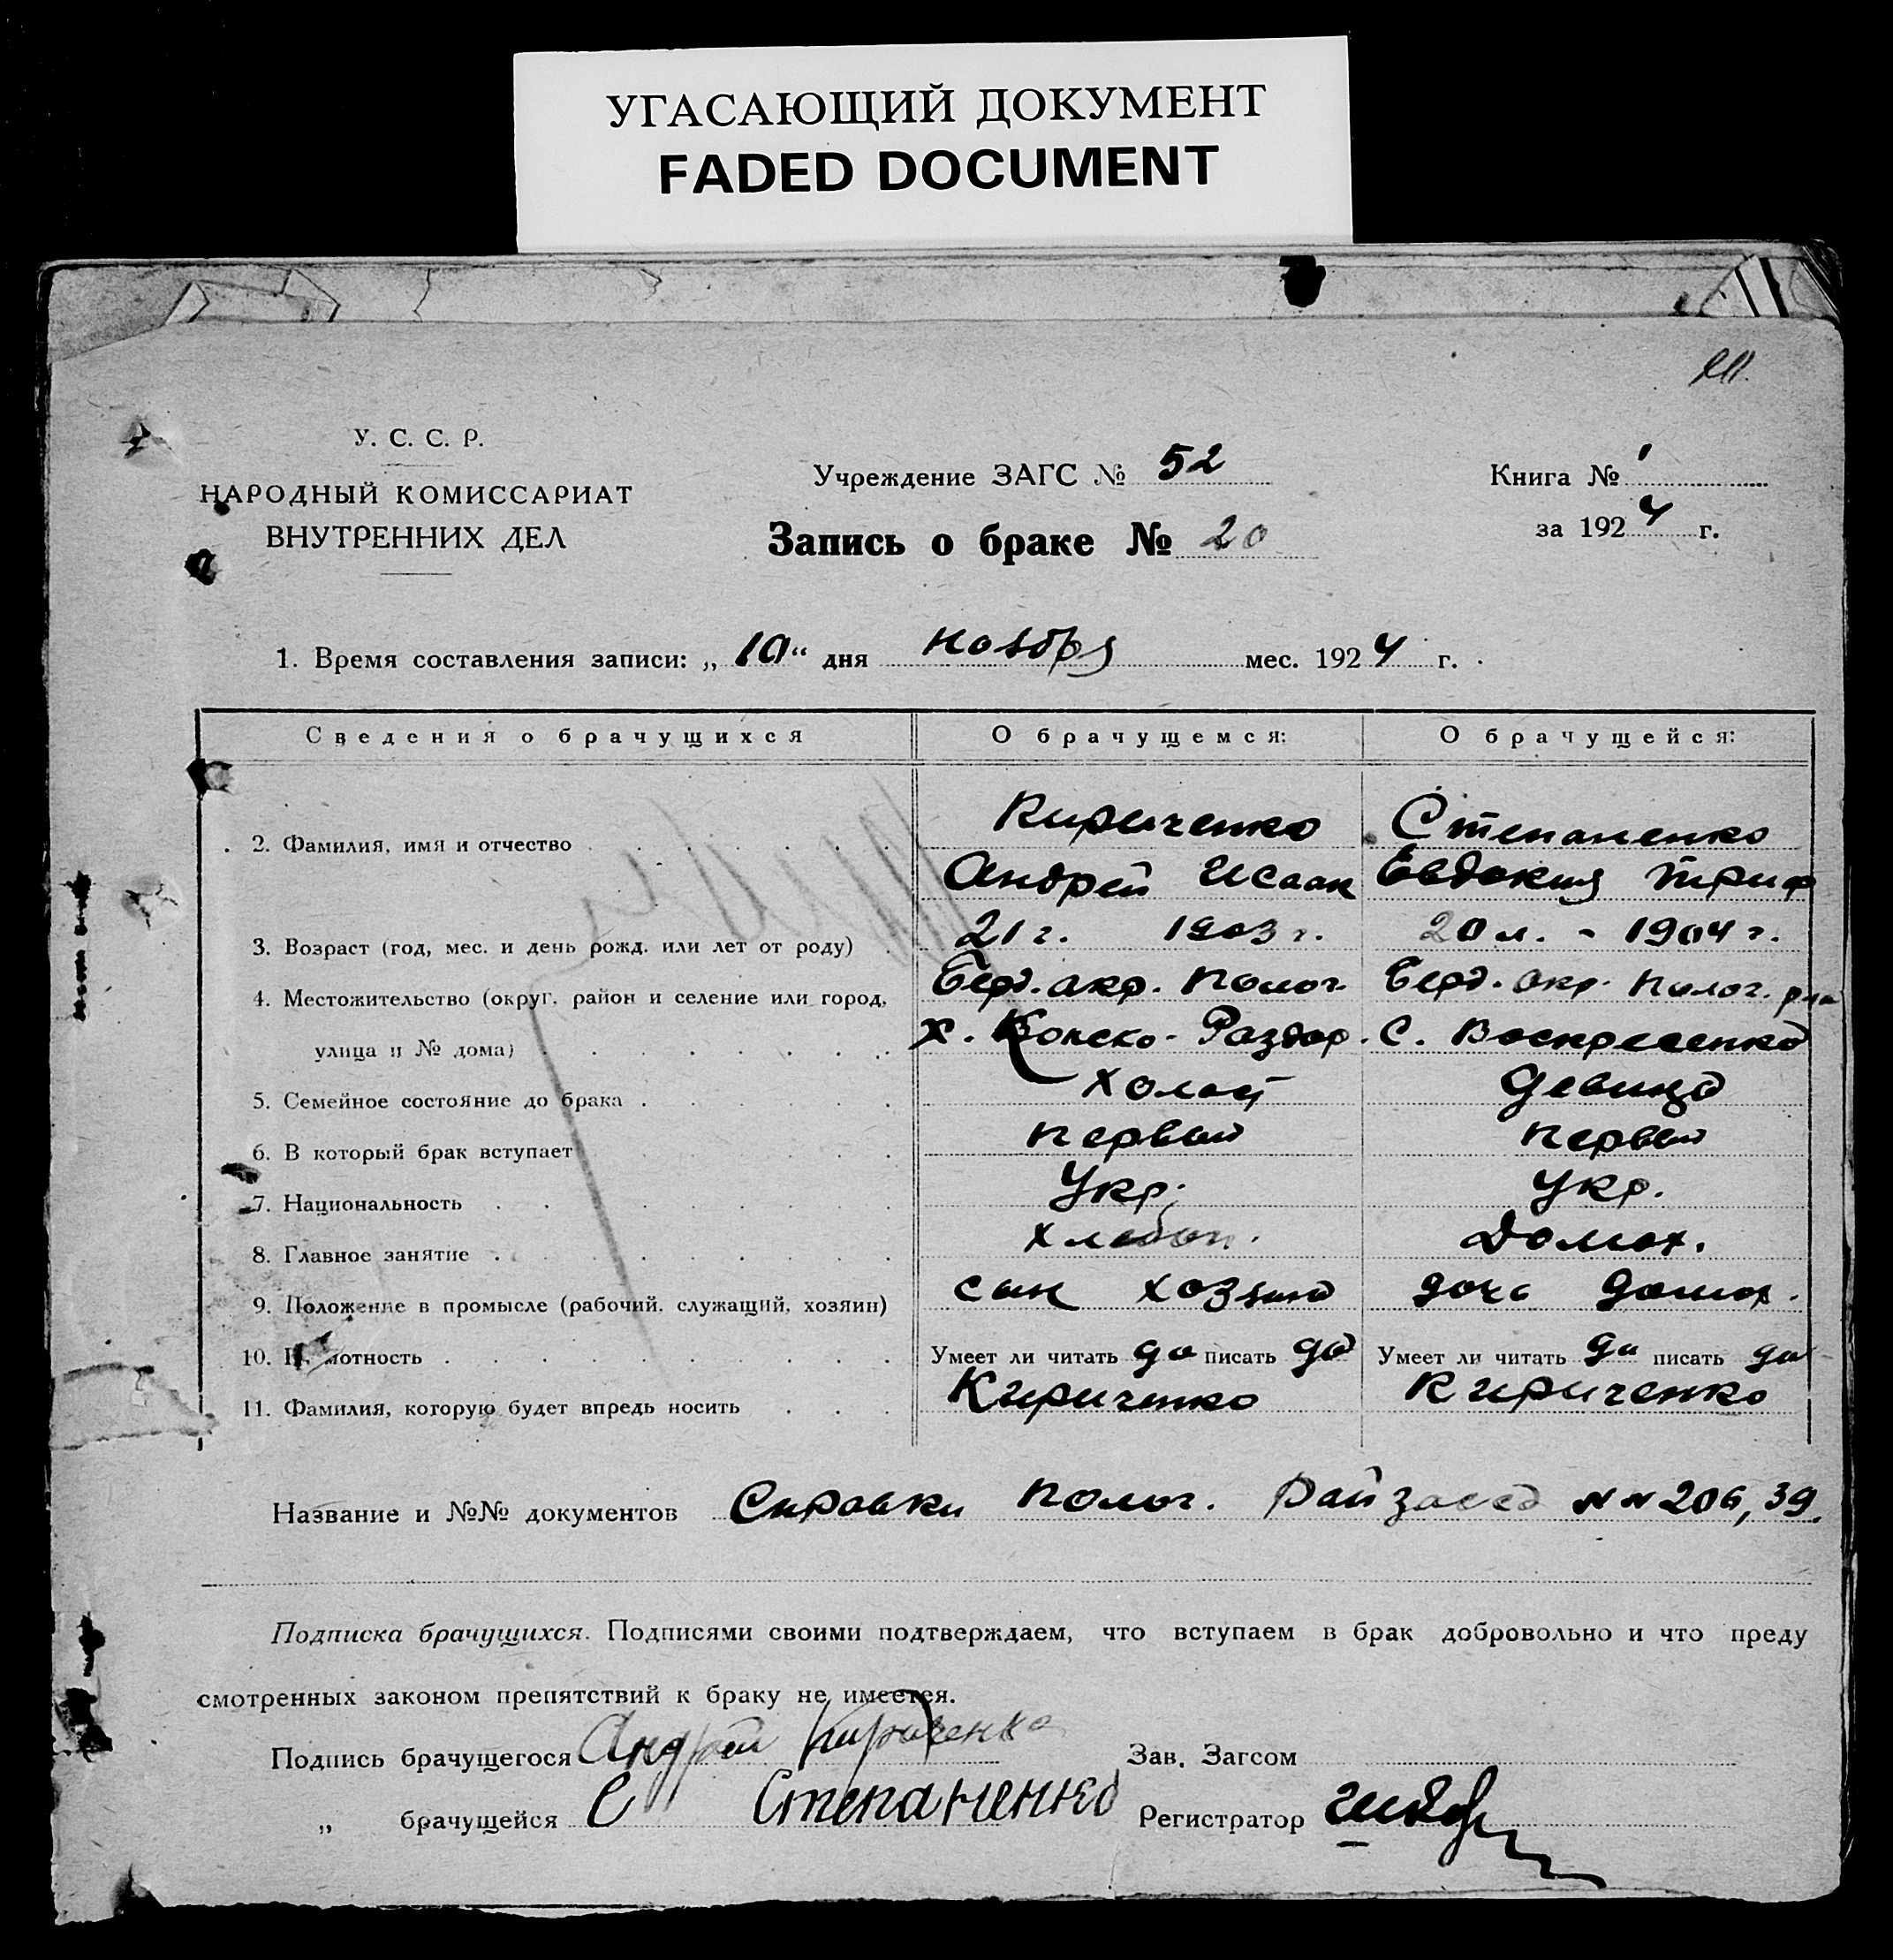 УГАСАЮЩИЙ ДОКУМЕНТ
FADED DOCUMENT
У. С. С. Р.
НАРОДНЫЙ КОМИССАРИАТ
ВНУТРЕННИХ ДЕЛ
Учреждение ЗАГС № 52
Запись о браке № 20
Книга № 1
за 1924 г.
1. Время составления записи: „10“ дня ноября мес. 1924 г.
Сведения о брачущихся О брачущемся: О брачущейся:
2. Фамилия, имя и отчество Кириченко Степаненко
Андрей Исаак Евдокия Триф
3. Возраст (год, мес. и день рожд. или лет от роду) 21 г. 1903 г. 20 л. - 1904 г.
4. Местожительство (округ, район и селение или город, Берд. окр. Полог. Берд. окр. Полог. р-на
улица и № дома) х. Конско-Раздор. С. Воскресенка
5. Семейное состояние до брака Холост Девица
6. В который брак вступает первый первый
7. Национальность Укр. Укр.
8. Главное занятие хлебоп. Домох.
9. Положение в промысле (рабочий, служащий, хозяин) сын хозяина дочь домох.
10. Грамотность Умеет ли читать да писать да Умеет ли читать да писать да
11. Фамилия, которую будет впредь носить Кириченко Кириченко
Название и №№ документов Справки Полог. №№ 206, 39.
Подписка брачущихся. Подписями своими подтверждаем, что вступаем в брак добровольно и что преду
смотренных законом препятствий к браку не имеется.
Подпись брачущегося Андрей Кириченко Зав. Загсом
„ брачущейся Е Степаненко Регистратор